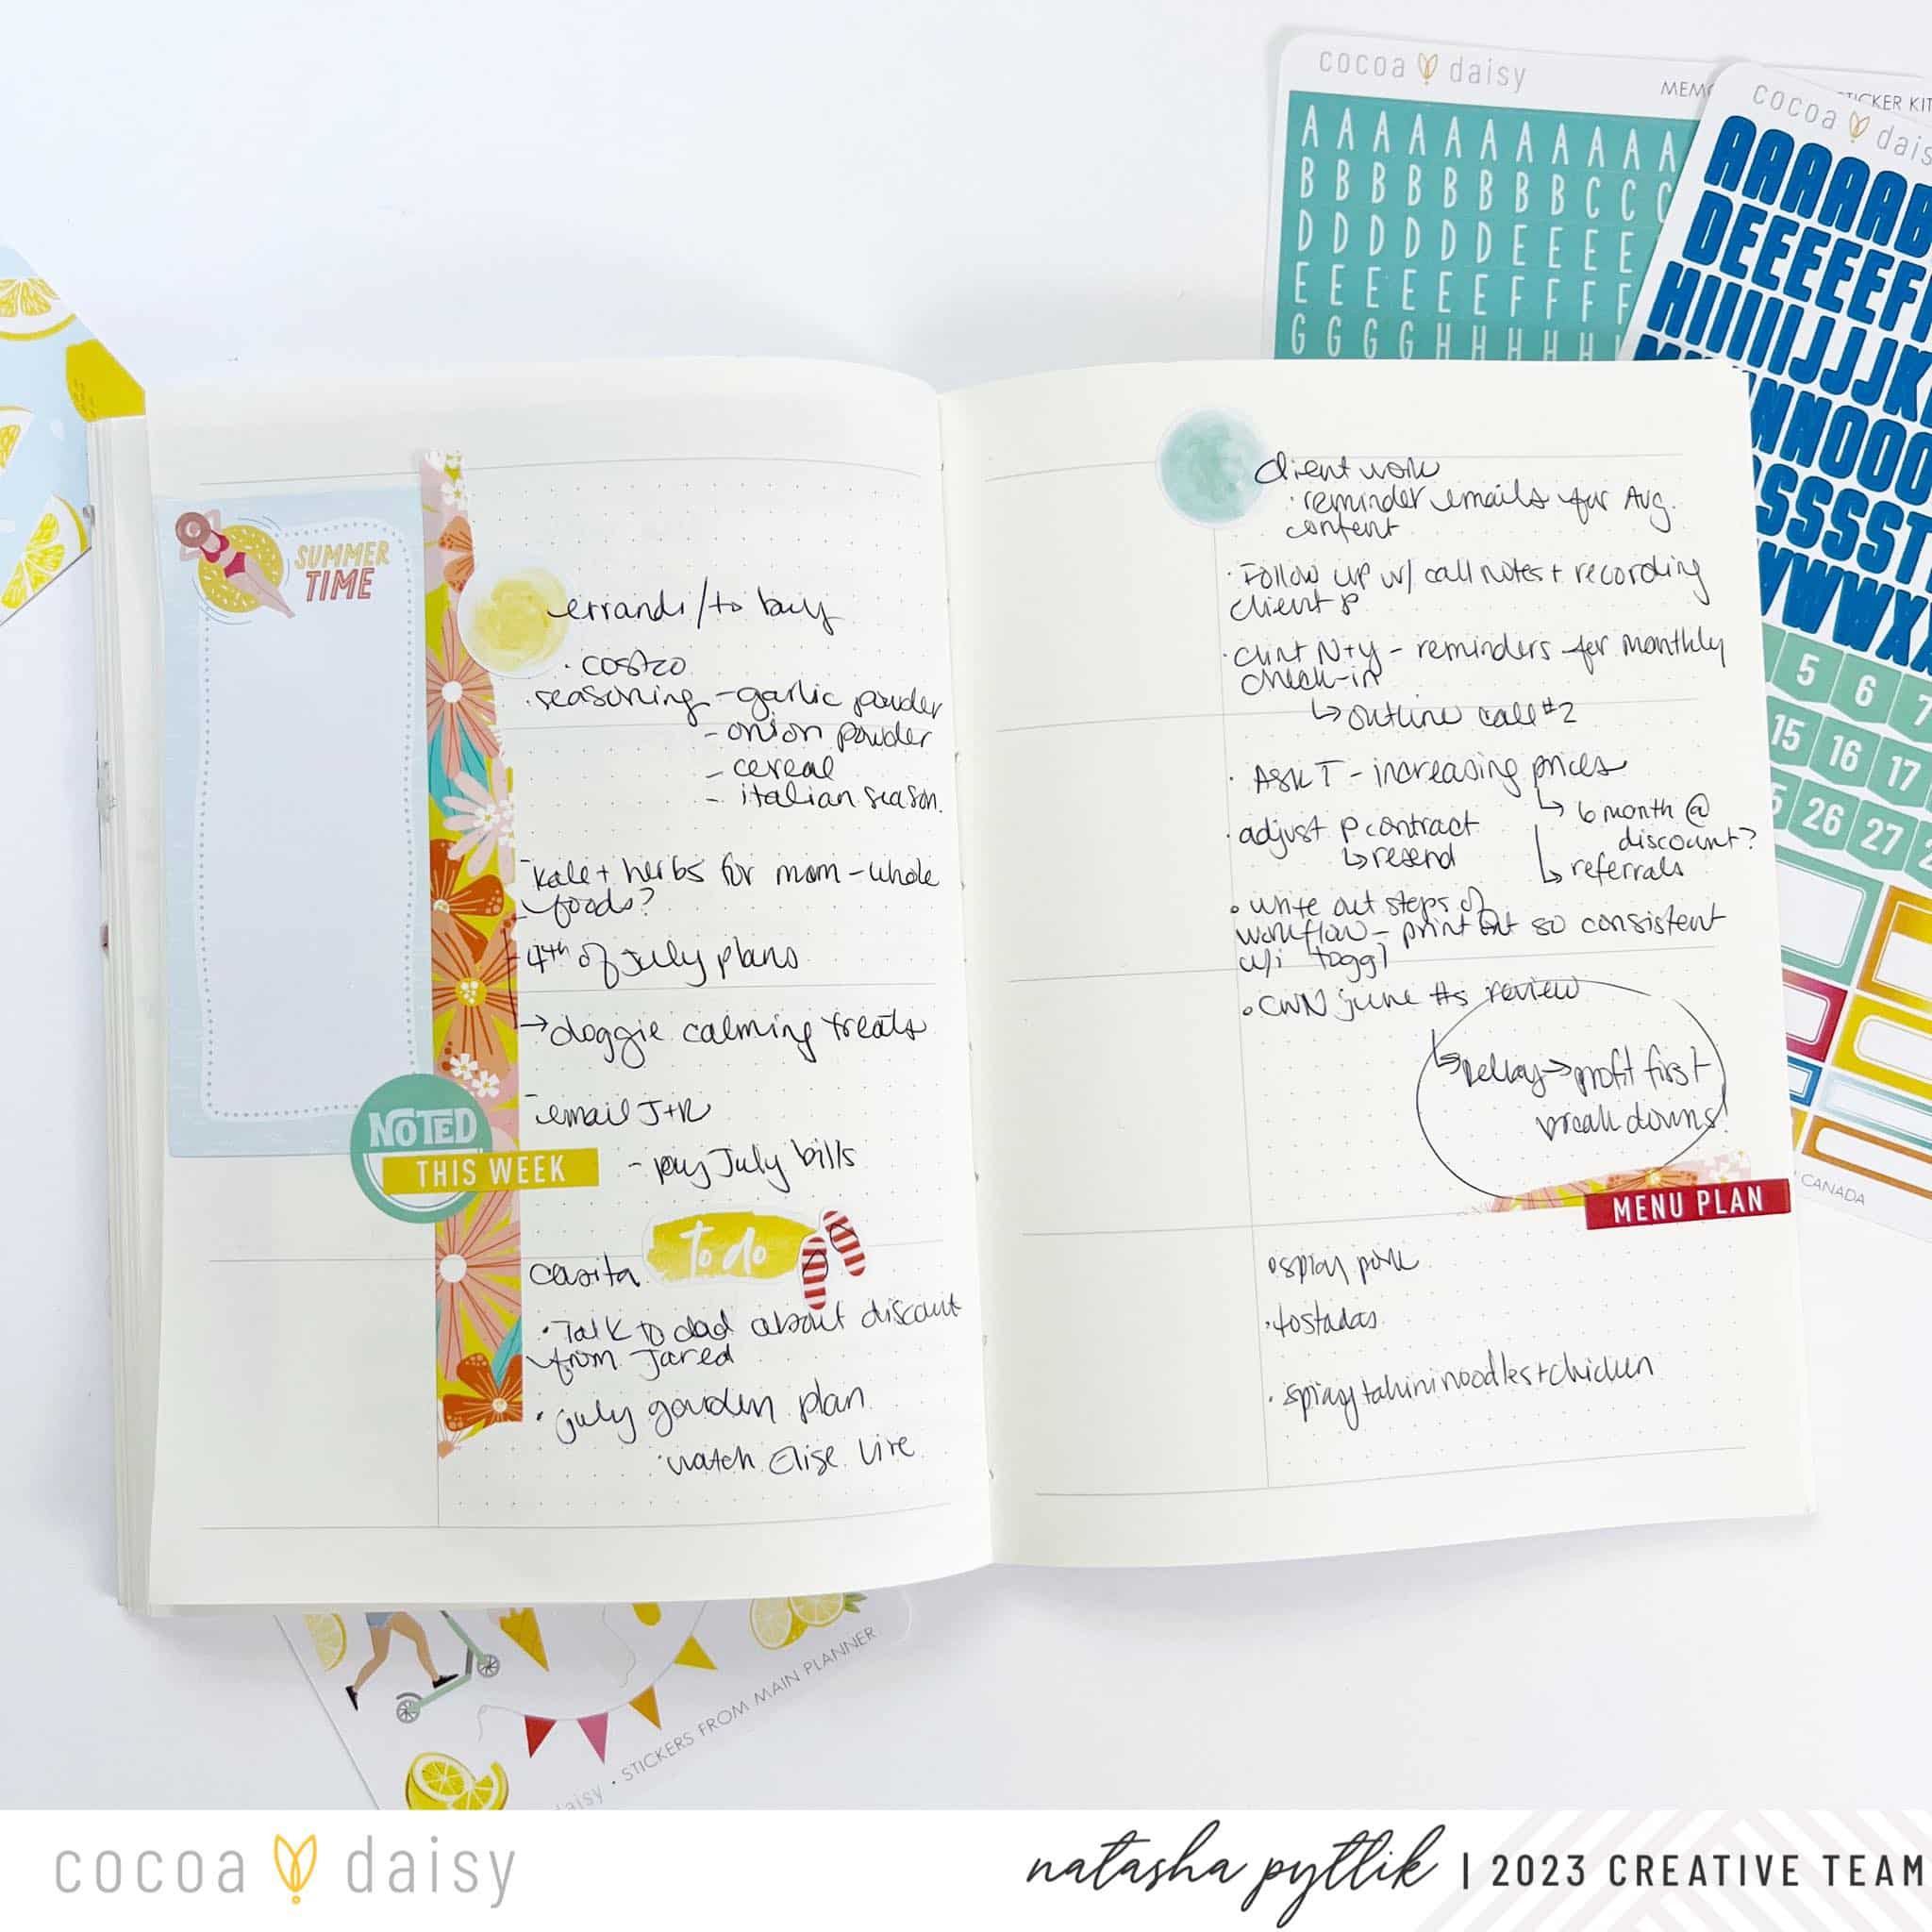 cocoa daisy
MEMO
STICKER KIT
cocoa dais
A A A A A A A A A A A
B B B B B B B B C C C
D D D D D D E E E E
E E E E E E F F F F
G G G G H H H H H
AAAAAB
DEEEEEF
HIIIIIJJJK
NNOOO
SSSST
WWWXX
5 6 7
15 16 17
26 27
CANADA
SUMMER
TIME
errands/to buy
· costco
· seasoning - garlic powder
- onion powder
- cereal
- italian season.
- kale + herbs for mom - whole
foods?
4th of July plans
→ doggie calming treats
- email J+R
- pay July bills
NOTED
THIS WEEK
to do
casita
· Talk to dad about discount
from Jared
· july garden plan
· watch Elise Live
client work
· reminder emails for Aug.
content
· Follow up w/ call notes + recording
client P
· client N+Y - reminders for monthly
check-in
↳ outline call #2
· Ask T - increasing prices
↳ 6 month @
discount?
↳ referrals
· adjust P contract
↳ resend
• write out steps of
workflow - print out so consistent
w/i toggl
• CWN june #s review
↳ → profit first
break downs!
MENU PLAN
• spicy pork
· tostadas
· spicy tahini noodles + chicken
daisy • STICKERS FROM MAIN PLANNER
cocoa daisy
natasha pyttlik | 2023 CREATIVE TEAM